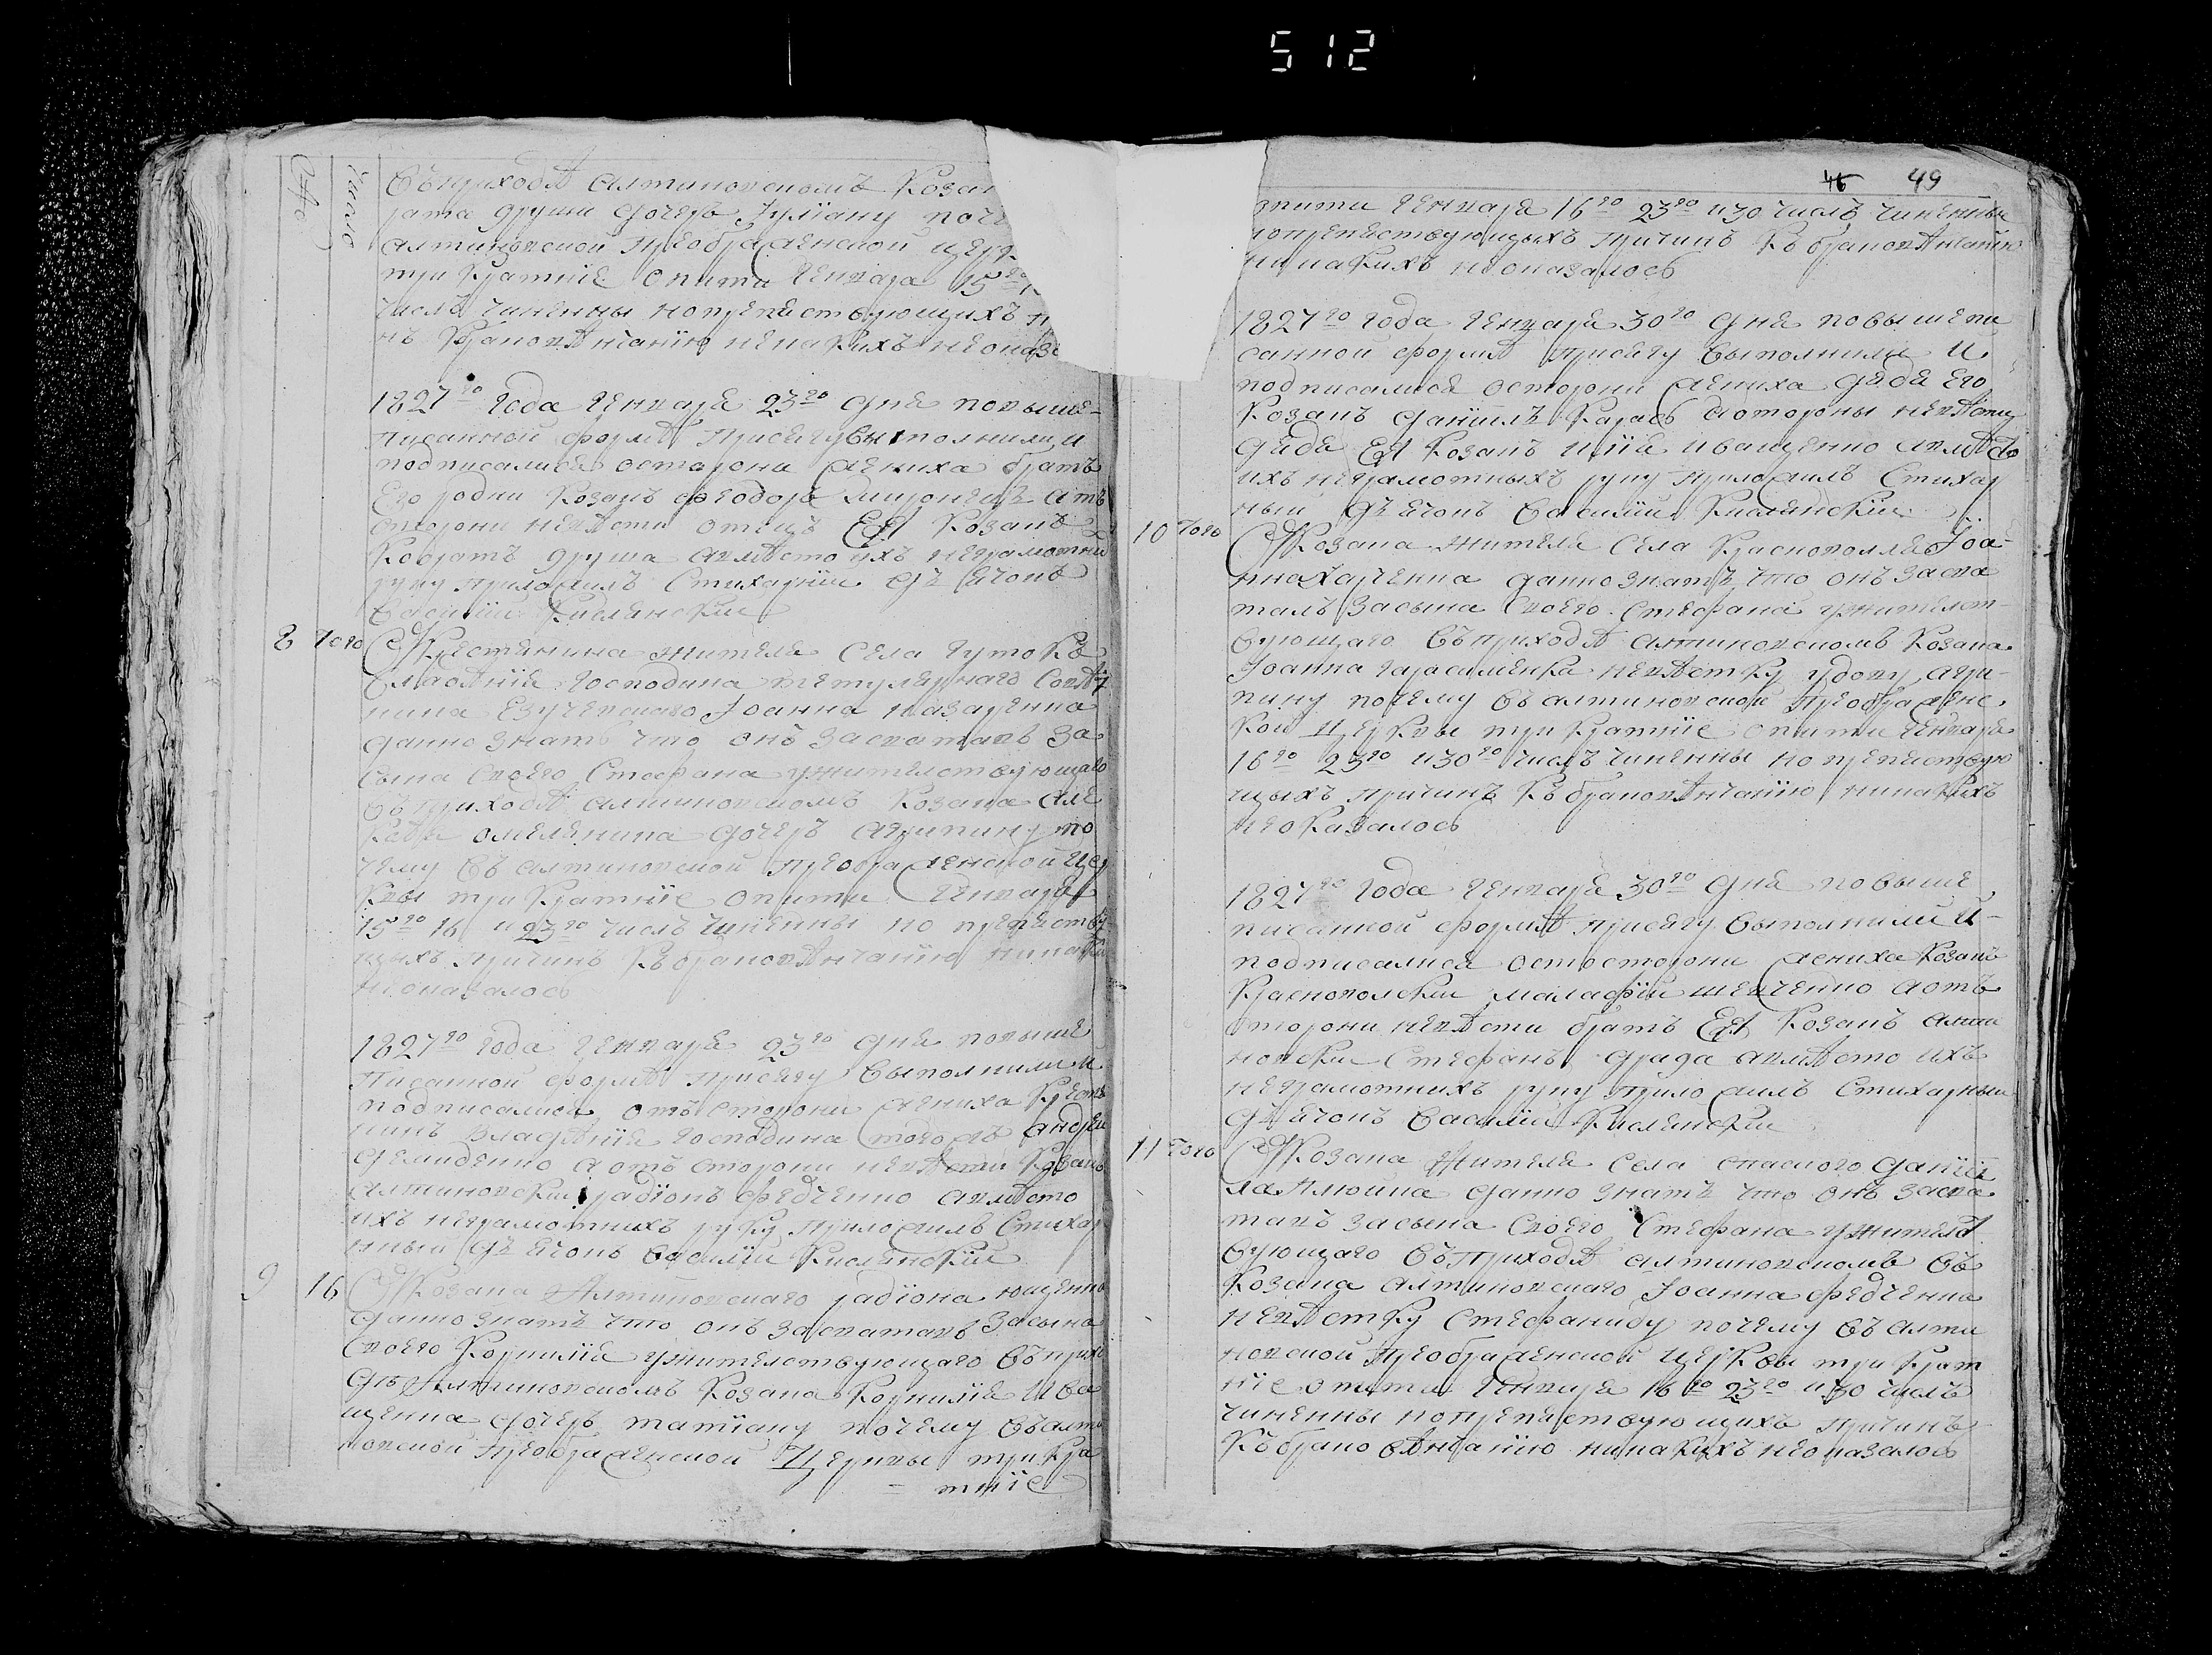 512
Число
въ приходѣ алтиновскомъ Козака
рата друши дочерь Іулїану поче
алтиновской Преображенской церк
три кратнїе опити генваря 15го
числъ чиненны но препятствующихъ п
нъ к браковѣнчанїю некакихъ неоказа
1827го года генваря 23го дня повыше-
писанной формѣ присягу выполнили и
подписалися остороны жениха братъ
Его родни Козакъ феодоръ а отъ
сторони невѣсти отецъ Ея Козакъ
Кодратъ друша авмѣсто ихъ неграмотни
руку приложилъ Стихарнїи дьячокъ
Василїи Кислинскїи
8 Того Крестянина жителя села гутокъ
владѣнїя господина титулярного совѣт
ника Іоанна назаренка
данно знать что онъ засваталъ за
сына своего Стефана ужителствующаго
въ приходѣ алтиновскомъ козака але
омеляника дочерь агрипину по
чему въ алтиновской преображенской цер
квы три кратнїе опити генваря
15го 16 и 23го числъ чиненны но препятству
щихъ причинъ къ браковѣнчанїю никаки
неоказалось
1827го года генваря 23го дня повыше
писанной формѣ присягу выполнили и
подписалися отъ сторони жениха крестя
нинъ владѣнїя господина того жъ андреи
демиденко а отъ сторони невѣсти козакъ
алтиновскии радїонъ федченко авмѣсто
ихъ неграмотнихъ руку приложилъ Стихар
ный дьячокъ василїи Кислинскїи
9 16 Козака Алтиновского радїона ющенка
данно знать что онъ засваталъ засына
своего Корнилїя ужителствующаго въ прихо
дѣ Алтиновскомъ Козака Корнилїя Ива
щенка дочерь татїану почему въ алти
новской преображенской Церквы три кра
= тнїе
46 49
опити генваря 16го 23го и 30 числъ чиненны
нопрепятствующихъ причинъ къ браковѣнчанїю
никакихъ неоказалось
1827го года генваря 30го дня повышепи
санной формѣ присягу выполнили и
подписалися остороны жениха дядя его
Козакъ данїилъ Карась а отороны невѣсти
дядя Ея Козакъ илїя иващенко авмѣсто
ихъ неграмотныхъ руку приложилъ Стихар
ныи дьячокъ Василїи Кислинскїи
10 Того Козака жителя села Краснополля Іоа-
нна харченка данно знать что онъ засва
талъ засына своего Стефана ужителст-
вующаго въ приходѣ алтиновскомъ Козака
Іоанна герасименка невѣстку удову агри-
пину почему въ алтиновской преображенс
кой Церквы три кратнїе опити генваря
16го 23го и 30го числъ чиненны но препятствую
щихъ причинъ къ браковѣнчанїю никакихъ
неоказалось
1827го года генваря 30го дня повыше
писанной формѣ присягу выполнили и-
подписалися остосторони жениха Козакъ
Краснополскии малафїи шевченко а отъ
сторони невѣсти братъ Ея Козакъ алти
новскии Стефанъ авмѣсто ихъ
неграмотнихъ руку приложилъ Стихарныи
дьячокъ Василїи Кислинскїи
11 Того Козака жителя села спаского данїи
ла данно знать что онъ засва
талъ засына своего Стефана ужителст
вующаго въ приходѣ алтиновскомъ въ
Козака алтиновского Іоанна федченка
невѣстку Стефаниду почему въ алти
новской преображенской церквы три крат
нїе опити генваря 16го 23го и 30 числъ
чиненны нопрепятствующихъ причинъ
къ браковѣнчанїю никакихъ неоказалось